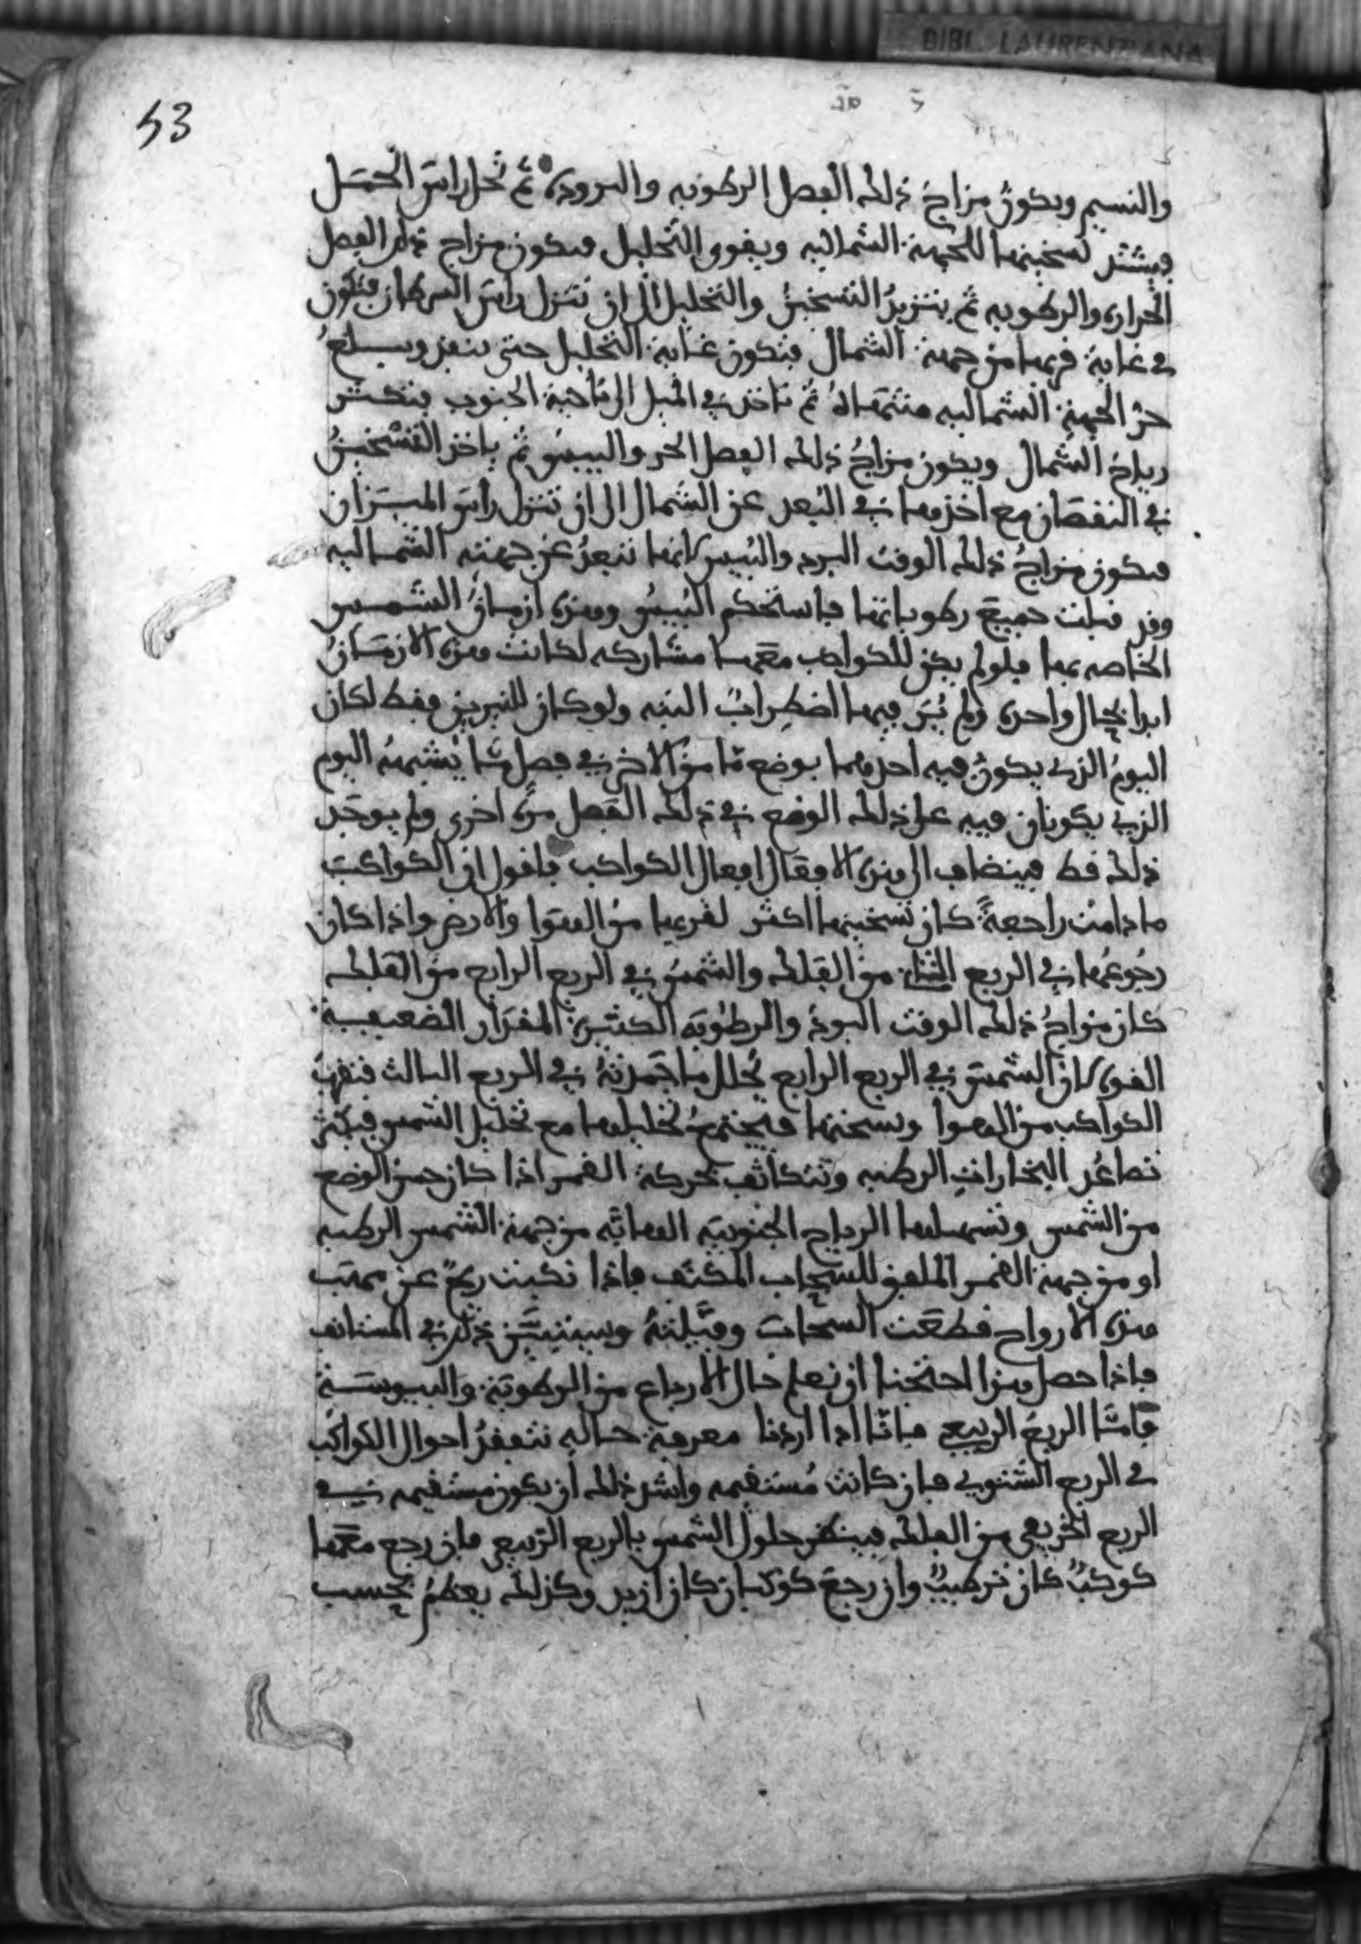 BIBL. LAURENZIANA
53
والنسيم ويكون مزاج ذلك الفصل الرطوبه والبروده ثم تحل راس الحمل
فيشتد تسخينها للجهة الشماليه ويقوى التحليل فيكون مزاج ذلك الفصل
الحراره والرطوبه ثم يتزيد التسخين والتحليل الى ان تنزل راس السرطان فتكون
في غاية قربها من جهة الشمال فتكون غاية التحليل حتى ينفد ويبلغ
حر الجهة الشماليه منتهاه ثم تاخذ في الميل الى ناحية الجنوب فتكثر
رياح الشمال ويكون مزاج ذلك الفصل الحر واليبس ثم ياخذ التسخين
في النقصان مع اخذها في البعد عن الشمال الى ان تنزل راس الميزان
فيكون مزاج ذلك الوقت البرد واليبس لانها تبعد عن جهته الشماليه
وقد جميع رطوباتها فاستحكم اليبس وهذه ازمان الشمس
الخاصه بها فلو لم يكن للكواكب معها مشاركه لكانت هذه الازمان
ابدا بحال واحده ولم يُرَ فيها اضطراب البته ولو كان للنيرين فقط لكان
اليوم الذي يكون فيه احدهما بوضع ما من الاخر في فصل ما يشبهه اليوم
الذي يكونان فيه على ذلك الوضع في ذلك الفصل مرة اخرى ولم يوجد
ذلك قط فينضاف الى هذه الافعال افعال الكواكب فاقول ان الكواكب
ما دامت راجعةً كان تسخينها اكثر لقربها من الهوا والارض واذا كان
رجوعها في الربع من الفلك والشمس في الربع الرابع من الفلك
كان مزاج ذلك الوقت والرطوبة الكثيرة المقدار الضعيفة
القوى لان الشمس في الربع الرابع تحلل ما جمدته في الربع الثالث فتقرب
الكواكب من الهوا وتسخنها فيجتمع تحليلها مع تحليل الشمس فيكثر
تصاعد البخارات الرطبه وتتكاثف بحركة القمر اذا كان حسن الوضع
من الشمس الرياح الجنوبية الهابّه من جهة الشمس الرطبه
او من جهة القمر للسحاب المكثف فاذا نكبت ريح عن مهب
هذه الارواح قطعت السحاب وسنبين ذلك في المستانف
فاذا حصل هذا احتجنا ان نعلم حال الارباع من الرطوبة واليبوسة
فاما الربع الربيعي فانا اذا اردنا معرفة حاله نتفقد احوال الكواكب
في الربع الشتوي فان كانت مستقيمه واشد ذلك ان يكون مستقيمه في
الربع الخريفي من الفلك فينظر حلول الشمس بالربع الربيعي فان رجع معها
كوكبٌ كان ترطيبٌ وان رجع كوكبان كان ازيد وكذلك يعظم بحسب